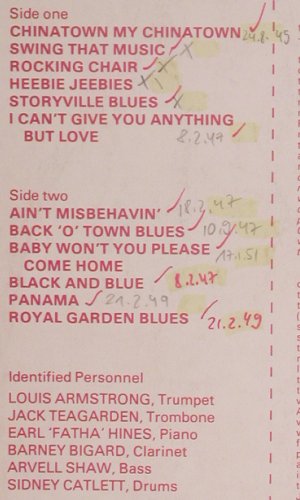 Side one
CHINATOWN MY CHINATOWN 24.8.45
SWING THAT MUSIC X
ROCKING CHAIR X
HEEBIE JEEBIES X
STORYVILLE BLUES X
I CAN'T GIVE YOU ANYTHING
BUT LOVE 8.2.47
Side two
AIN'T MISBEHAVIN' 18.2.47
BACK 'O' TOWN BLUES 10.9.47
BABY WON'T YOU PLEASE 17.1.51
COME HOME
BLACK AND BLUE 8.2.47
PANAMA 21.2.49
ROYAL GARDEN BLUES 21.2.49
Identified Personnel
LOUIS ARMSTRONG, Trumpet
JACK TEAGARDEN, Trombone
EARL 'FATHA' HINES, Piano
BARNEY BIGARD, Clarinet
ARVELL SHAW, Bass
SIDNEY CATLETT, Drums